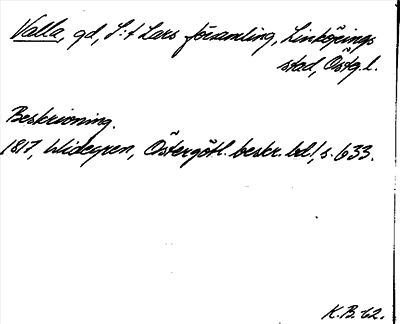 Valla, gd, S:t Lars församling, Linköpings
stad, Östg.l.
Beskrivning.
1817, Widegren, Östergötl. beskr. bd 1, s. 633.
K.B. 62.